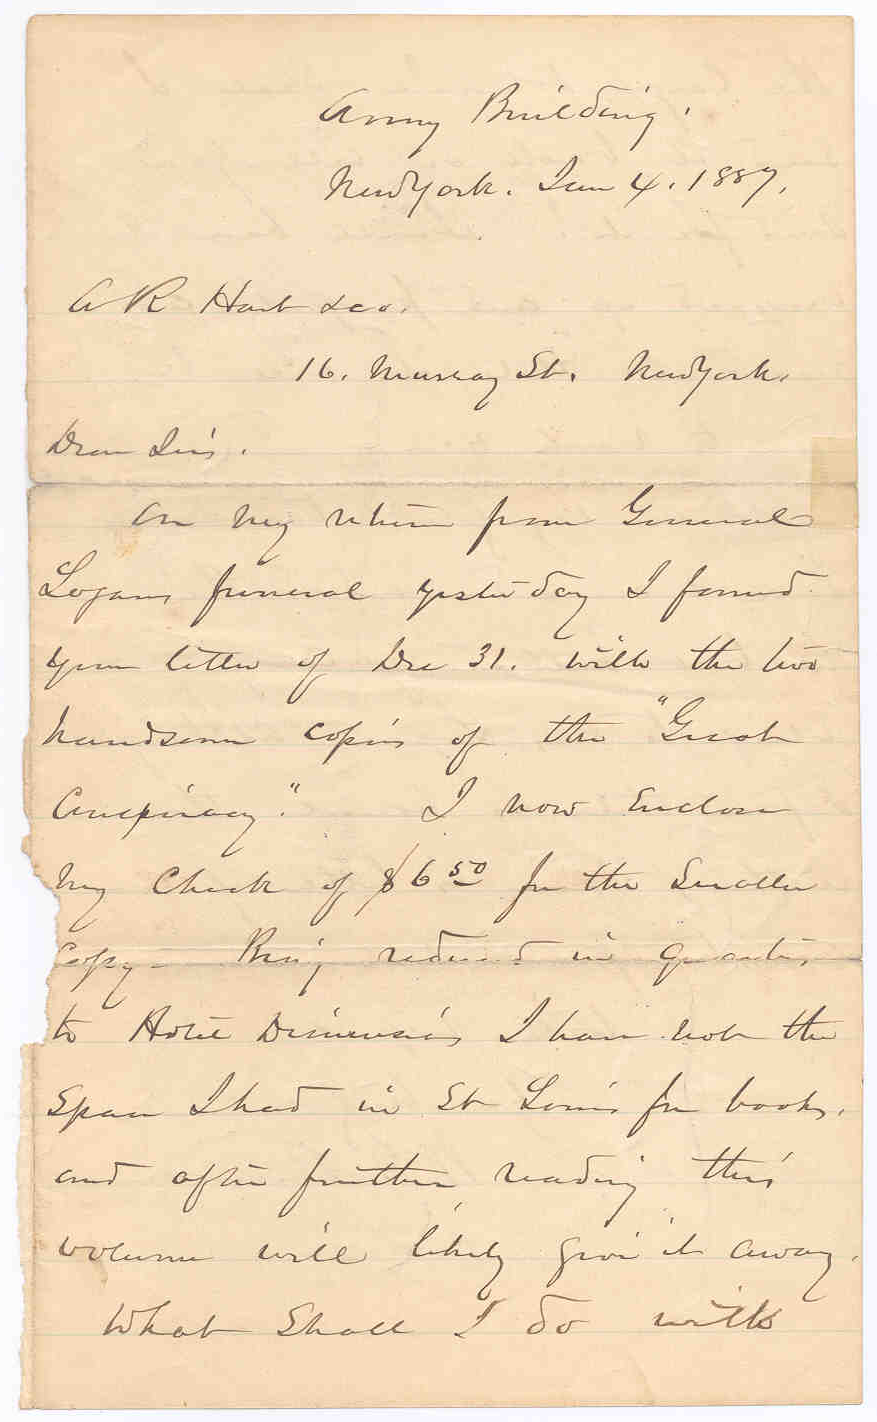 Army Building.
New York. Jan 4. 1887.
A R Hart & Co.
16. Murray St. New York.
Dear Sirs.
On my return from General
Logans funeral yesterday I found
your letter of Dec 31. with the two
handsome copies of the "Great
Conspiracy." I now Enclose
my Check of $6 50 for the Smaller
Copy - Being reduced in Quarters
to Hotel Dimensions I have not the
Space I had in St Louis for books,
and after further reading this
volume will likely give it away.
What Shall I do with